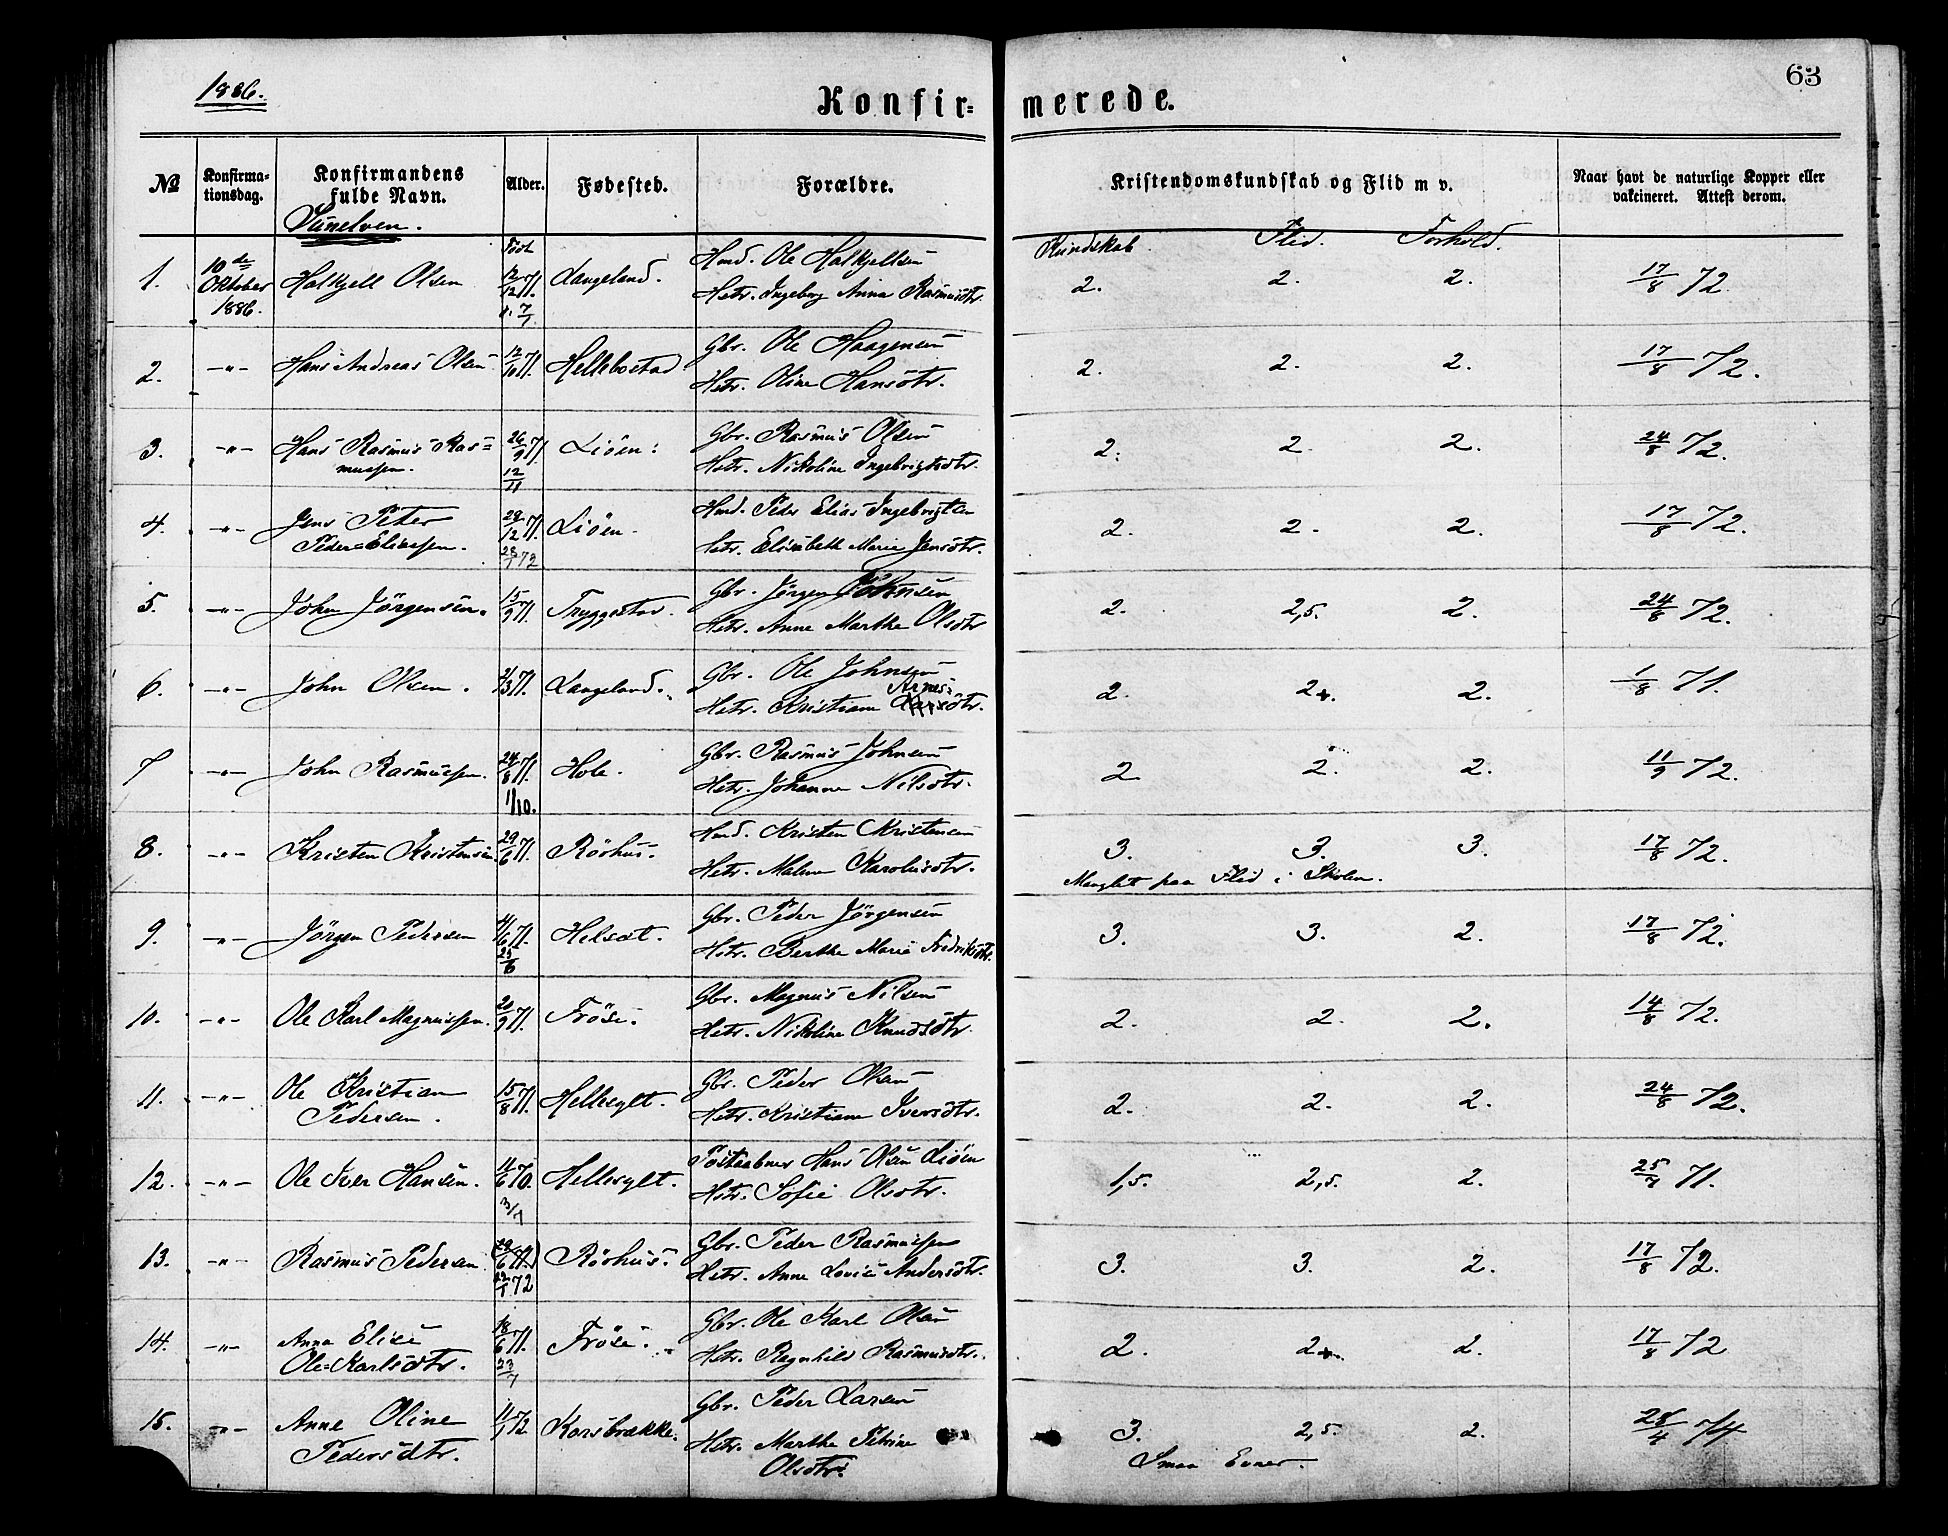 1886.
63
Konfir=
merede.
№
Konfirma-
tionsdag.
Konfirmandens
fulde Navn.
Alder.
Fødested.
Forældre.
Kristendomskundskab og Flid m v.
Naar havt de naturlige Kopper eller
vakcineret. Attest derom.
Sunelven.
Født
Kundskab Flid. Forhold.
1. 10de Oktober 1886. Halkjell Olsen 12/12 71. 7/1. Langeland. Gmd. Ole Halkjellsen
Hstr. Ingeborg Anna Rasmusdtr. 2. 2. 2. 17/8 72
2. -"- Hans Andreas Olsen 12/10 71. Hellebostad Gbr. Ole Haagensen
Hstr. Oline Hansdtr. 2. 2. 2. 17/8 72.
3. -"- Hans Rasmus Ras=
mussen. 26/9 71. 12/11 Liöen. Gbr. Rasmus Olsen
Hstr. Nikoline Ingebrigtsdtr. 2. 2. 2. 24/8 72.
4. -"- Jens Peter
Peder=Eliassen. 29/12 71. 28/1 72 Liöen. Hmd. Peder Elias Ingebrigtsen
Hstr. Elisabeth Marie Jensdtr. 2. 2. 2. 17/8 72.
5. -"- John Jörgensen. 15/9 71. Tryggestad. Gbr. Jörgen Johnsen
Hstr. Anne Marthe Olsdtr 2. 2,5. 2. 24/8 72.
6. -"- John Olsen. 71. Langeland. Gbr. Ole Johnsen
Hstr. Kristiane Arnesdtr. 2. 2+. 2. 1/8 71.
7 -"- John Rasmussen. 24/8 71. 1/10. Hole. Gbr. Rasmus Johnsen
Hstr. Johanne Nilsdtr. 2 2. 2. 11/9 72.
8. -"- Kristen Kristensen. 29/6 71. Rörhus. Hmd. Kristen Kristensen
Hstr. Malene Karolusdtr. 3. 3. 3. 17/8 72.
Manglet paa Flid i Skolen.
9. -"- Jörgen Pedersen 4/6 71. 25/6 Helsæt. Gbr. Peder Jörgensen
Hstr. Berthe Marie Fredriksdtr. 3. 3. 2. 17/8 72.
10. -"- Ole Karl Magnussen. 20/9 71. Fröse. Gbr. Magnus Nilsen
Hstr. Nikoline Knudsdtr. 2. 2. 2. 14/8 72.
11. -"- Ole Kristian
Pedersen. 15/8 71. Hellesylt. Gbr. Peder Olsen
Hstr. Kristiane Iversdtr. 2. 2. 2. 24/8 72.
12. -"- Ole Iver Hansen. 11/6 70. 3/7 Hellesylt. Postaabner Hans Olsen Liöen
Hstr. Sofie Olsdtr. 1,5. 2,5. 2. 25/7 71.
13. -"- Rasmus Pedersen (29/6 71.) 72 Rörhus. Gbr. Peder Rasmussen
Hstr. Anne Lovise Andersdtr. 3. 3. 2. 17/8 72.
14. -"- Anna Elise
Ole=Karlsdtr. 18/6 71. 23/7 Fröse. Gbr. Ole Karl Olsen
Hstr. Ragnhild Rasmusdtr. 2. 2+. 2. 17/8 72
15. -"- Anne Oline
Pedersdtr. 11/1 72 Korsbrække. Gbr. Peder Larsen
Hstr. Marthe Petrine
Olsdtr. 3. 2,5. 2. 28/4 74
Smaa Evner.